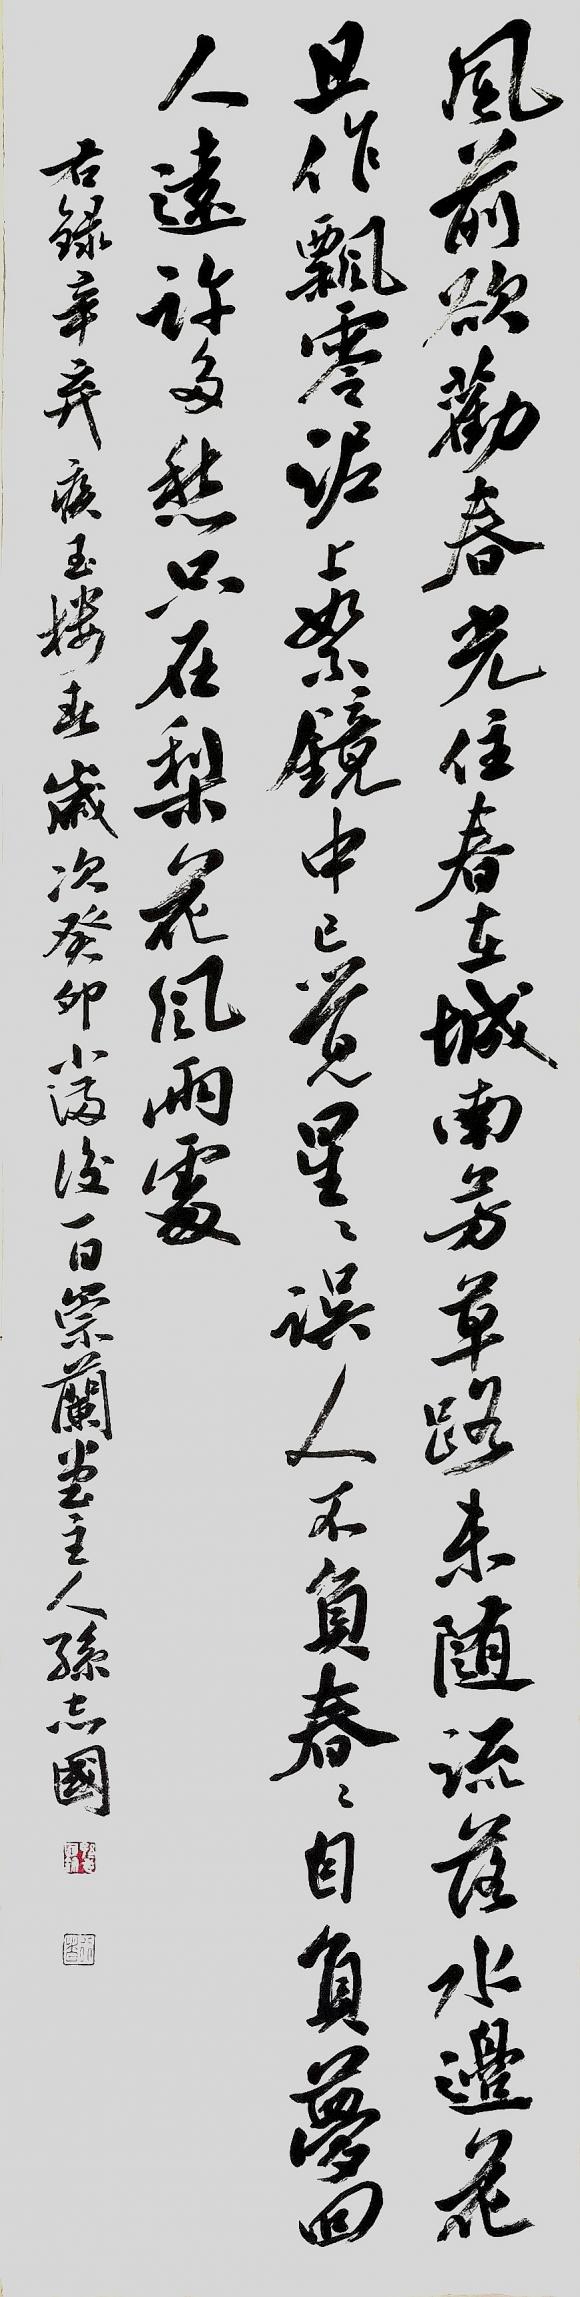 風前欲勸春光住春在城南芳草路未随流落水邊花
且作飄零泥上絮鏡中已覺星〻誤人不負春〻自負夢回
人遠許多愁只在梨花風雨處
右録辛弃疾玉樓春歲次癸卯小滿後一日崇蘭堂主人孫志國